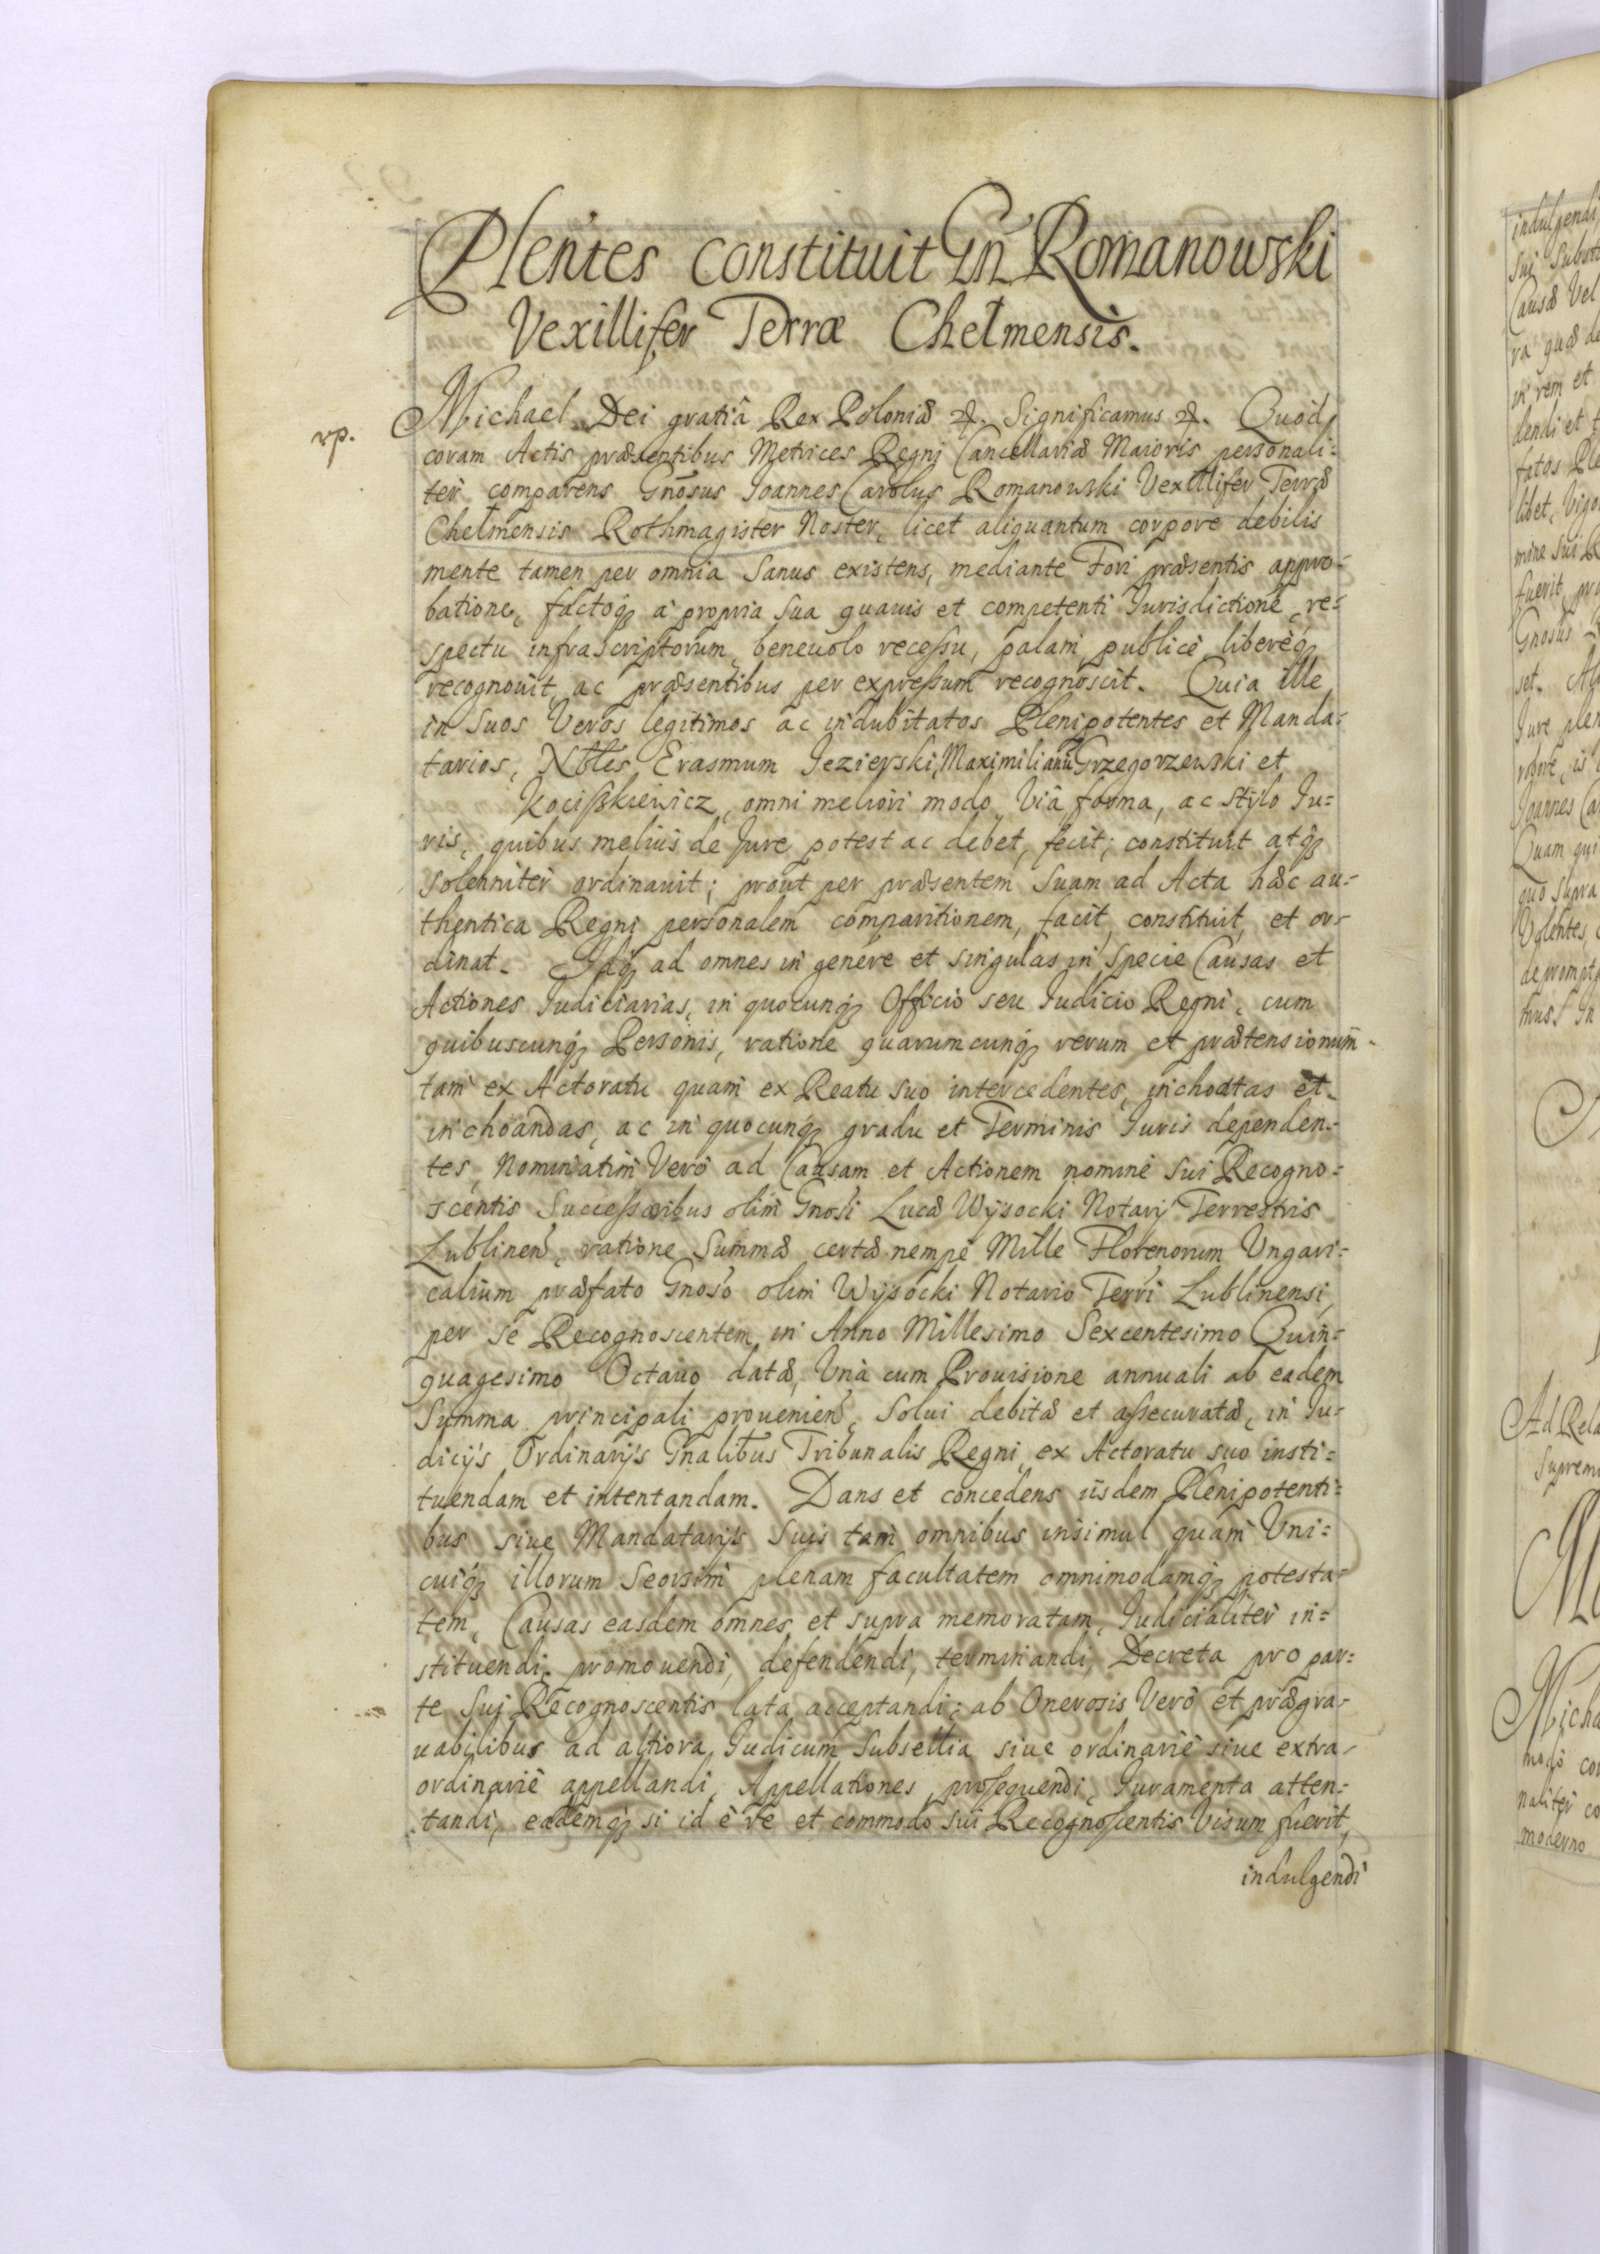 Plentes constituit Gn Romanowski
Vexillifer Terræ Chelmensis.
rp.
Michael Dei gratiâ Rex Poloniæ &. Significamus &. Quod
coram Actis præsentibus Metrices Regni Cancellariæ Maioris personali=
ter comparens Gnosus Joannes Carolus Romanowski Vexillifer Terræ
Chelmensis Rothmagister Noster, licet aliquantum corpore debilis
mente tamen per omnia Sanus existens, mediante Fori præsentis appro=
batione, factoq; à propria sua quavis et competenti Jurisdictione, re=
spectu infrascriptorum, beneuolo recessu, palam, publicè, liberèq;
recognouit, ac præsentibus per expressum recognoscit. Quia ille
in Suos Veros legitimos ac indubitatos Plenipotentes et Manda=
tarios, Nbles Erasmum Jezierski, Maximilianū Grzegorzewski et
Kocisskiewicz, omni meliori modo, Viâ, forma, ac Stylo Ju=
ris, quibus meliùs de Jure potest ac debet, fecit, constituit atq;
solenniter ordinauit; prout per præsentem Suam ad Acta hæc au=
thentica Regni personalem comparitionem, facit, constituit, et or=
dinat. Idq; ad omnes in genere et singulas in specie Causas et
Actiones Judiciarias, in quocunq; Officio seu Judicio Regni, cum
quibuscunq; Personis, ratione quarumcunq; rerum et prætensionum
tam ex Actoratu quam ex Reatu suo intercedentes, inchoatas et
inchoandas, ac in quocunq; gradu et Terminis Juris dependen=
tes, Nominatim Verò ad Causam et Actionem nomine sui Recogno=
scentis Successoribus olim Gnosi Lucæ Wysocki Notarij Terrestris
Lublinen, ratione Summæ certæ nempe Mille Florenorum Ungari=
calium præfato Gnoso olim Wysocki Notario Terri Lublinensi,
per se Recognoscentem in Anno Millesimo Sexcentesimo Quin=
quagesimo Octauo datæ, Unà cum Prouisione annuali ab eadem
Summa principali prouenien, Solui debitæ et assecuratæ, in Ju=
dicijs Ordinarijs Gnalibus Tribunalis Regni, ex Actoratu suo insti=
tuendam et intentandam. Dans et concedens iisdem Plenipotenti=
bus siue Mandatarijs Suis tam omnibus insimul quam Uni=
cuiq; illorum Seorsim plenam facultatem omnimodamq; potesta=
tem, Causas easdem omnes et supra memoratam, Judicialiter in=
stituendi, promouendi, defendendi, terminandi, Decreta pro par=
te Sui Recognoscentis lata acceptandi; ab Onerosis Verò et prægra=
uabilibus ad altiora Judicum Subsellia siue ordinariè siue extra=
ordinariè appellandi, Appellationes prosequendi, Juramenta atten=
tandi, eademq; si id è re et commodo sui Recognoscentis Visum fuerit,
indulgendi